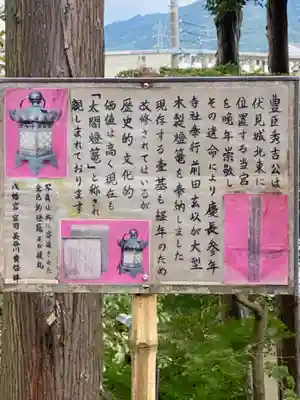 豊臣秀吉公は
伏見城北東に
位置する当宮
を晩年崇敬し
その遺命により慶長参年
寺社奉行 前田玄以が大型
木製燈篭を奉納しました
現存する壹基も経年のため
改修されてはいるが
歴史的文化的
価値は高く現在も
「太閤燈篭」と称され
親しまれております